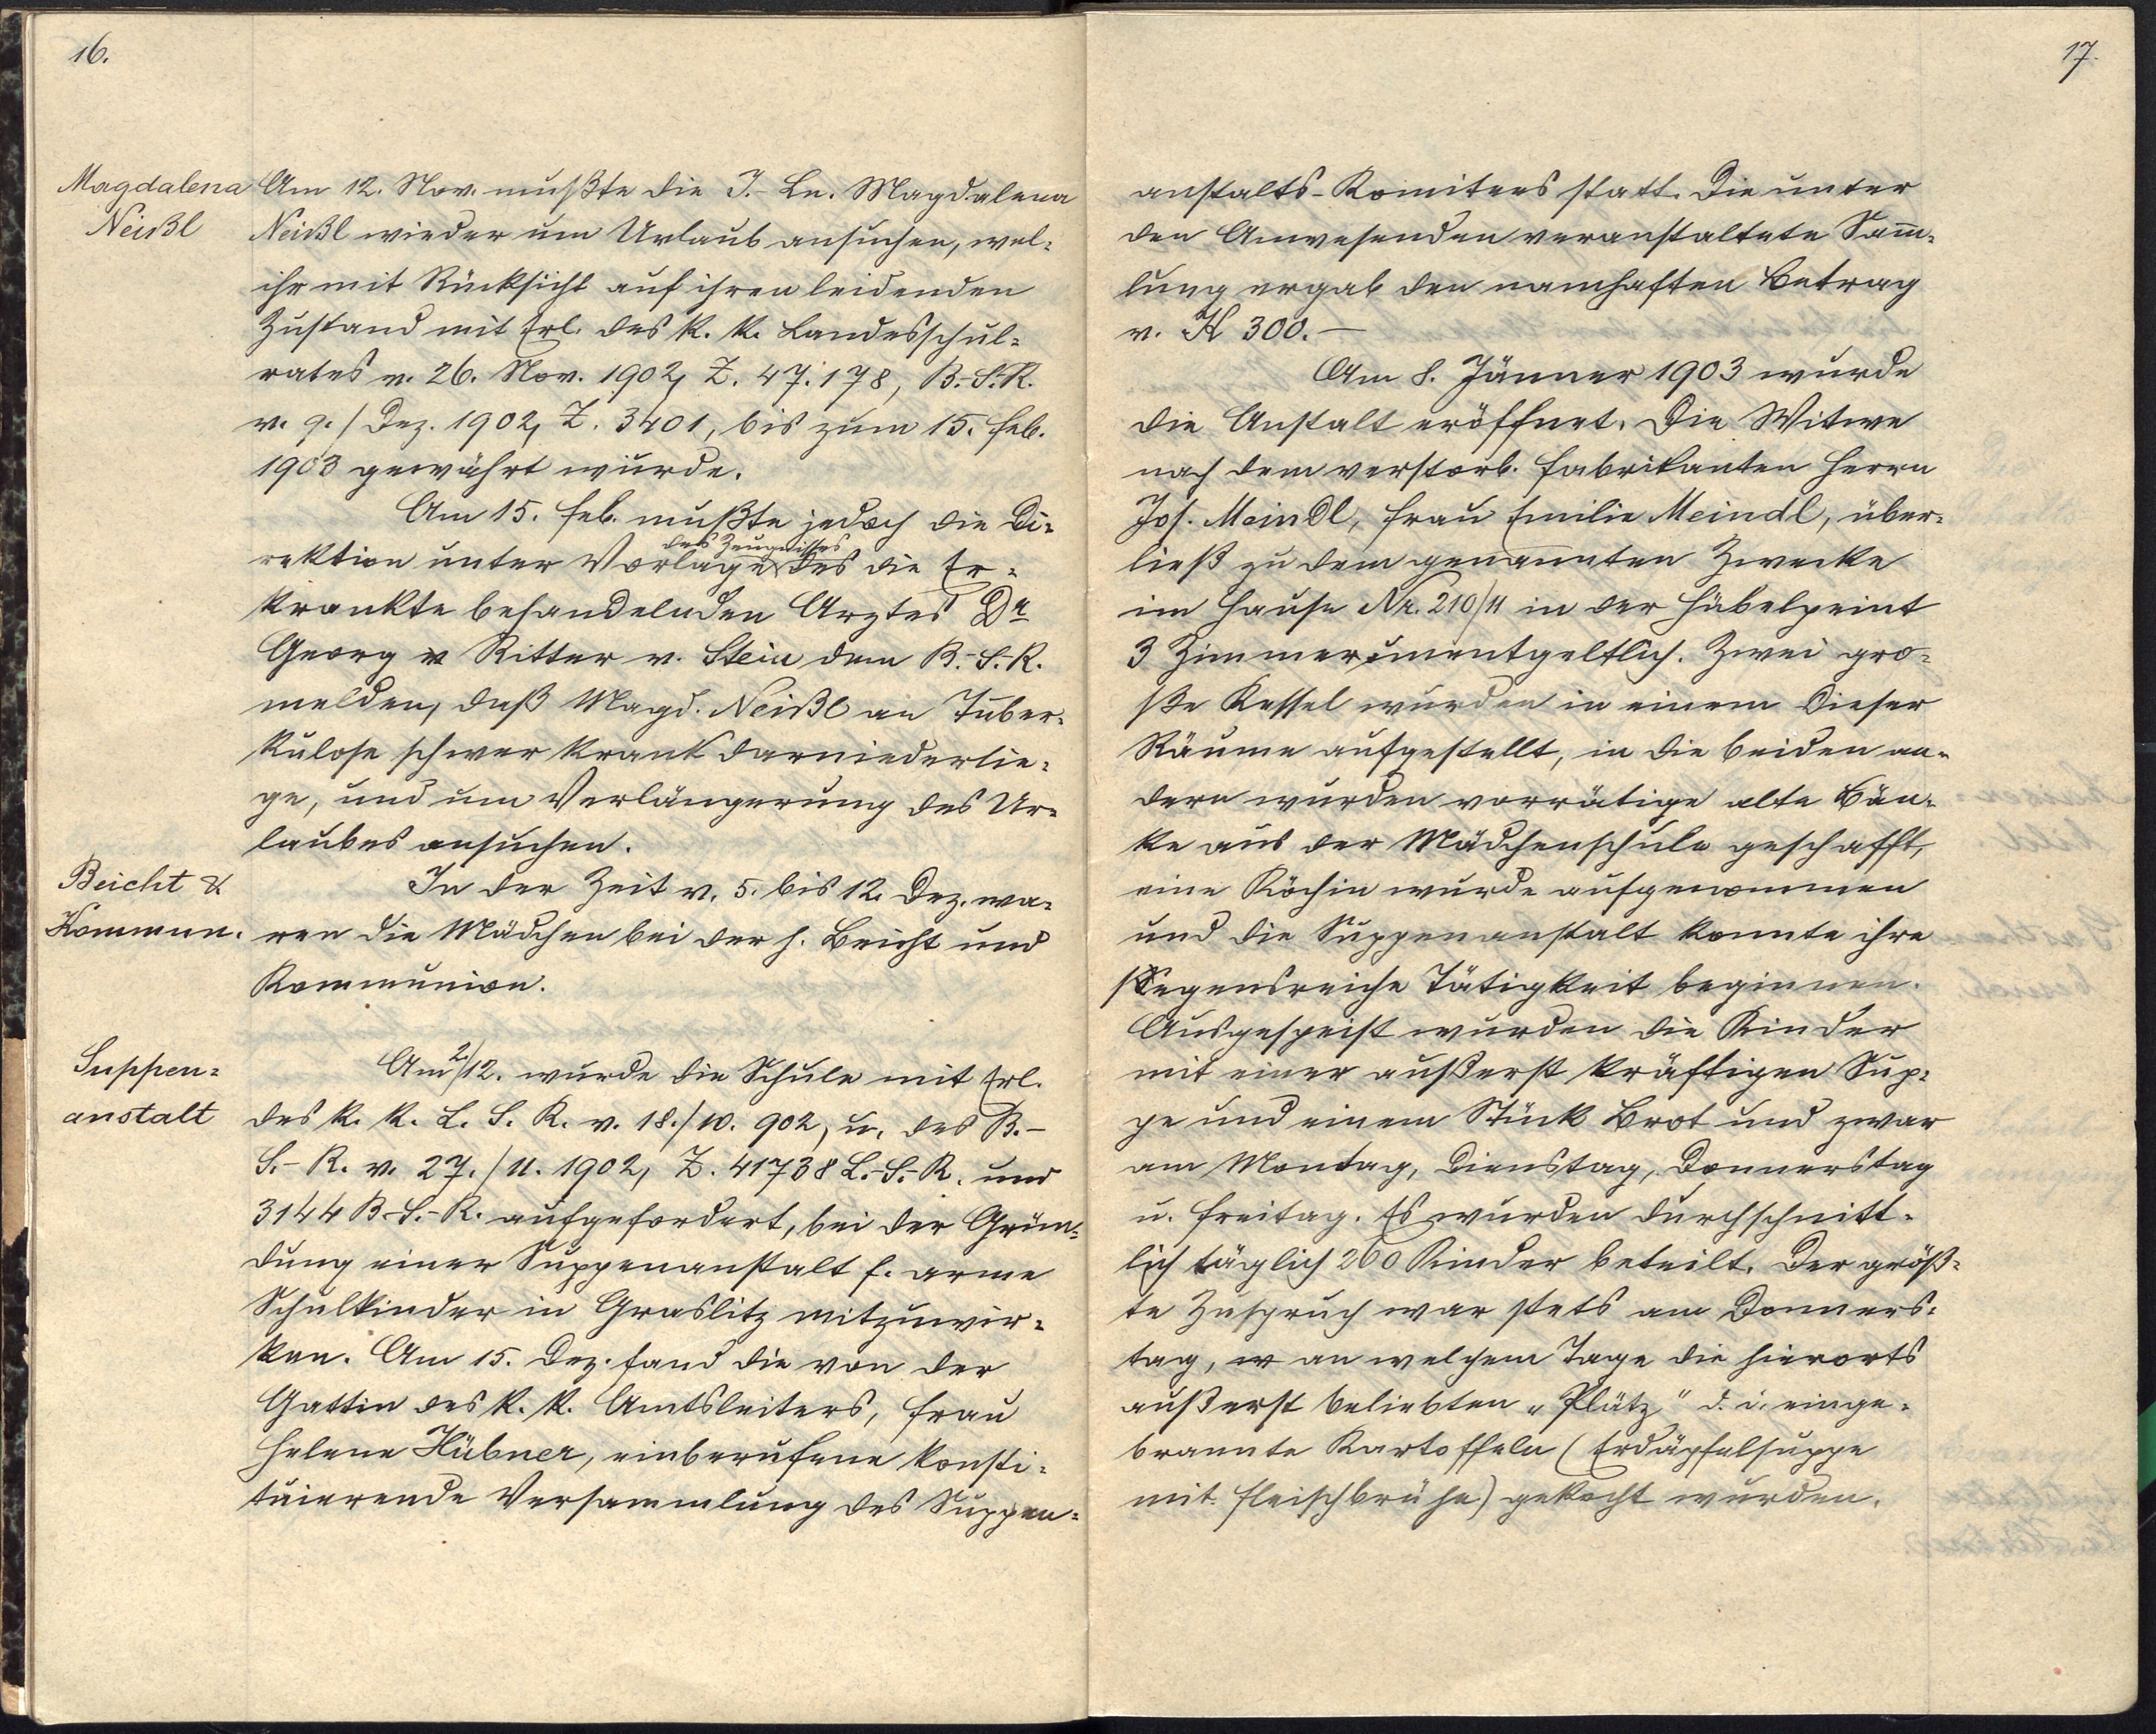 16.
Magdalena
Neißl
Am 12. Nov. mußte die J.-Ln. Magdalena
Neißl wieder um Urlaub ansuchen, wel-
ihr mit Rücksicht auf ihren leidenden
Zustand mit Erl. des k. k. Landesschul-
rates v. 26. Nov. 1902, Z. 47.178, B.-S.-R.
v. 9./Dez. 1902, Z. 3401, bis zum 15. Feb.
1903 gewährt wurde.
Am 15. Feb. mußte jedoch die Di-
des Zeugnisses
rektion unter Vorlage des die Er-
krankte behandelnden Arztes Dr
Georg v Ritter v. Stein dem B.-S.-R.
melden, daß Magd. Neißl an Tuber-
kulose schwer krank darniederlie-
ge, und um Verlängerung des Ur-
laubes ansuchen.
Beicht &
Kommun.
In der Zeit v. 5. bis 12. Dez. wa-
ren die Mädchen bei der h. Beicht und
Kommunion.
Suppen-
anstalt
Am 2/12. wurde die Schule mit Erl.
des k. k. L. S. R. v. 18./10. 902, u. des B.-
S.-R. v. 27./11. 1902, Z. 41738 L.-S.-R. und
3144 B.-S.-R. aufgefordert, bei der Grün-
dung einer Suppenanstalt f. arme
Schulkinder in Graslitz mitzuwir-
ken. Am 15. Dez. fand die von der
Gattin des k. k. Amtsleiters, Frau
Helene Hübner, einberufene konsti-
tuierende Versammlung des Suppen-
17.
anstalts-Komitees statt. Die unter
den Anwesenden veranstaltete Sam̅-
lung ergab den namhaften Betrag
v. K 300.—
Am 8. Jänner 1903 wurde
die Anstalt eröffnet. Die Witwe
nach dem verstorb. Fabrikanten Herrn
Jos. Meindl, Frau Emilie Meindl, über-
ließ zu dem genannten Zwecke
im Hause Nr. 210/11 in der Hübelpeint
3 Zimmer unentgeltlich. Zwei gro-
ße Kessel wurden in einem dieser
Räume aufgestellt, in die beiden an-
dern wurden vorrätige alte Bän-
ke aus der Mädchenschule geschafft,
eine Köchin wurde aufgenommen
und die Suppenanstalt konnte ihre
segensreiche Tätigkeit beginnen.
Ausgespeist wurden die Kinder
mit einer außerst kräftigen Sup-
pe und einem Stück Brot und zwar
am Montag, Dienstag, Donnerstag
u. Freitag. Es wurden durchschnitt-
lich täglich 260 Kinder beteilt. Der größ-
te Zuspruch war stets am Donners-
tag, w an welchem Tage die hierorts
außerst beliebten „Plätz" d. i. einge-
brannte Kartoffeln (Erdäpfelsuppe
mit Fleischbrühe) gekocht wurden.